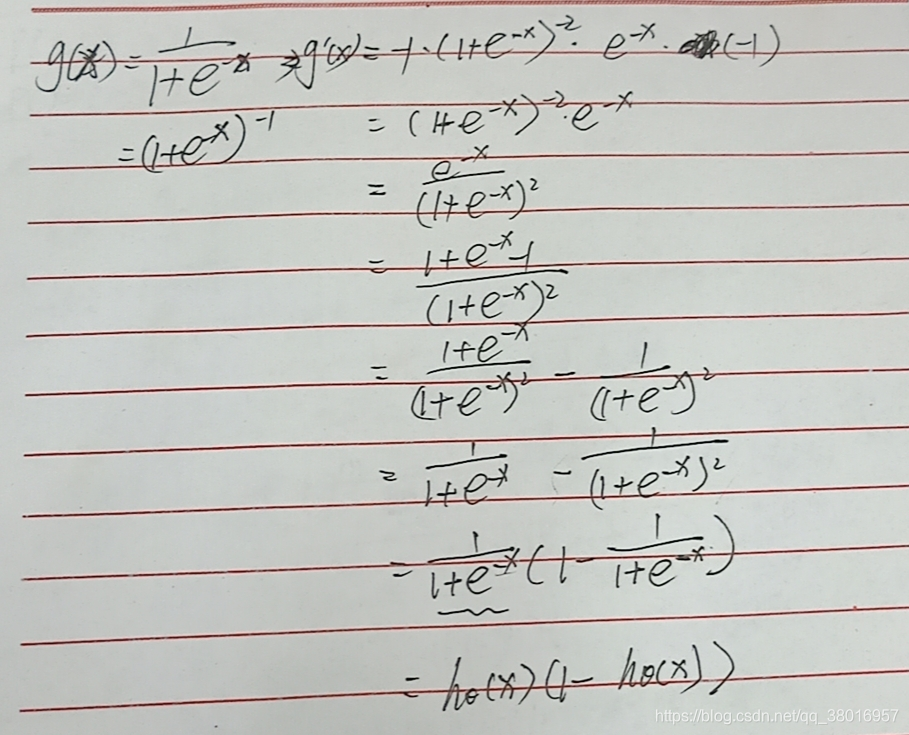 g(x) = 1/(1+e^-x) ⇒ g'(x) = -1·(1+e^-x)^-2 · e^-x · (-1)
= (1+e^-x)^-1 = (1+e^-x)^-2 · e^-x
= e^-x/(1+e^-x)^2
= (1+e^-x-1)/(1+e^-x)^2
= (1+e^-x)/(1+e^-x)^2 - 1/(1+e^-x)^2
= 1/(1+e^-x) - 1/(1+e^-x)^2
= 1/(1+e^-x) (1 - 1/(1+e^-x))
= hθ(x)(1 - hθ(x))
https://blog.csdn.net/qq_38016957